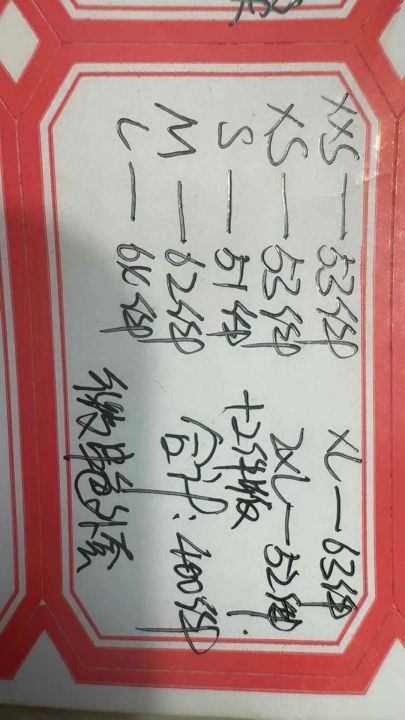 XXS — 53件
XS — 53件
S — 51件
M — 62件
L — 64件
XL — 63件
2XL — 52件
+2件版
合计:400件
色外套